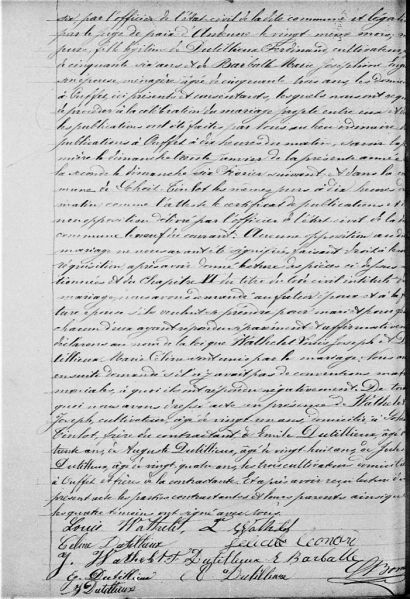 cité par l'officier de l'état civil de la dite commune et légalisé
par le juge de paix d' le vingt neuf mars,
fille légitime de Dutillieux Ferdinand, cultivateur,
de cinquante six ans et de Barbatte Marie Joséphine,
son épouse, ménagère, âgée de cinquante trois ans,
à Ouffet, ici présents et consentants, lesquels nous ont requis
de procéder à la célébration du mariage projeté entre eux et
les publications ont été faites par nous au lieu ordinaire
publications à Ouffet à dix heures du matin, savoir la
mière le dimanche janvier de la présente année
la seconde le dimanche six février suivant et dans la
mune de Tinlot les mêmes jours à dix heures du
matin comme l'atteste le certificat de publications et
non opposition délivré par l'officier de l'état civil de la
commune le neuf du courant. Aucune opposition au dit
mariage ne nous ayant été signifiée, faisant droit à leur
réquisition, après avoir donné lecture des pièces ci dessus
tionnées et du Chapitre VI du titre du code civil intitulé du
mariage, nous avons demandé au futur époux et à la
ture épouse s'ils veulent se prendre pour mari et pour
chacun d'eux ayant répondu séparément et affirmativement
déclarons au nom de la loi que Wathelet Louis Joseph et
Dutillieux Marie Céline sont unis par le mariage. Nous avons
ensuite demandé s'il n'y avait pas de conventions matri
moniales, à quoi ils ont répondu négativement. De tout
quoi nous avons dressé acte en présence de Wathelet
Joseph, cultivateur, âgé de vingt ans, domicilié à
Tinlot, frère du contractant, de Emile Dutillieux, âgé
trente ans, de Auguste Dutillieux, âgé de vingt huit ans, de Jules
Dutillieux, âgé de vingt quatre ans, les trois cultivateurs
à Ouffet et frères de la contractante. Et après avoir reçu lecture du
présent acte les parties contractantes et leurs parents ainsi que
les quatre témoins ont signé avec nous.
Louis Wathelet L Wathelet
Céline Dutillieux Léonore
J. Wathelet F Dutillieux E Barbatte
E. Dutillieux A Dutillieux
J Dutillieux